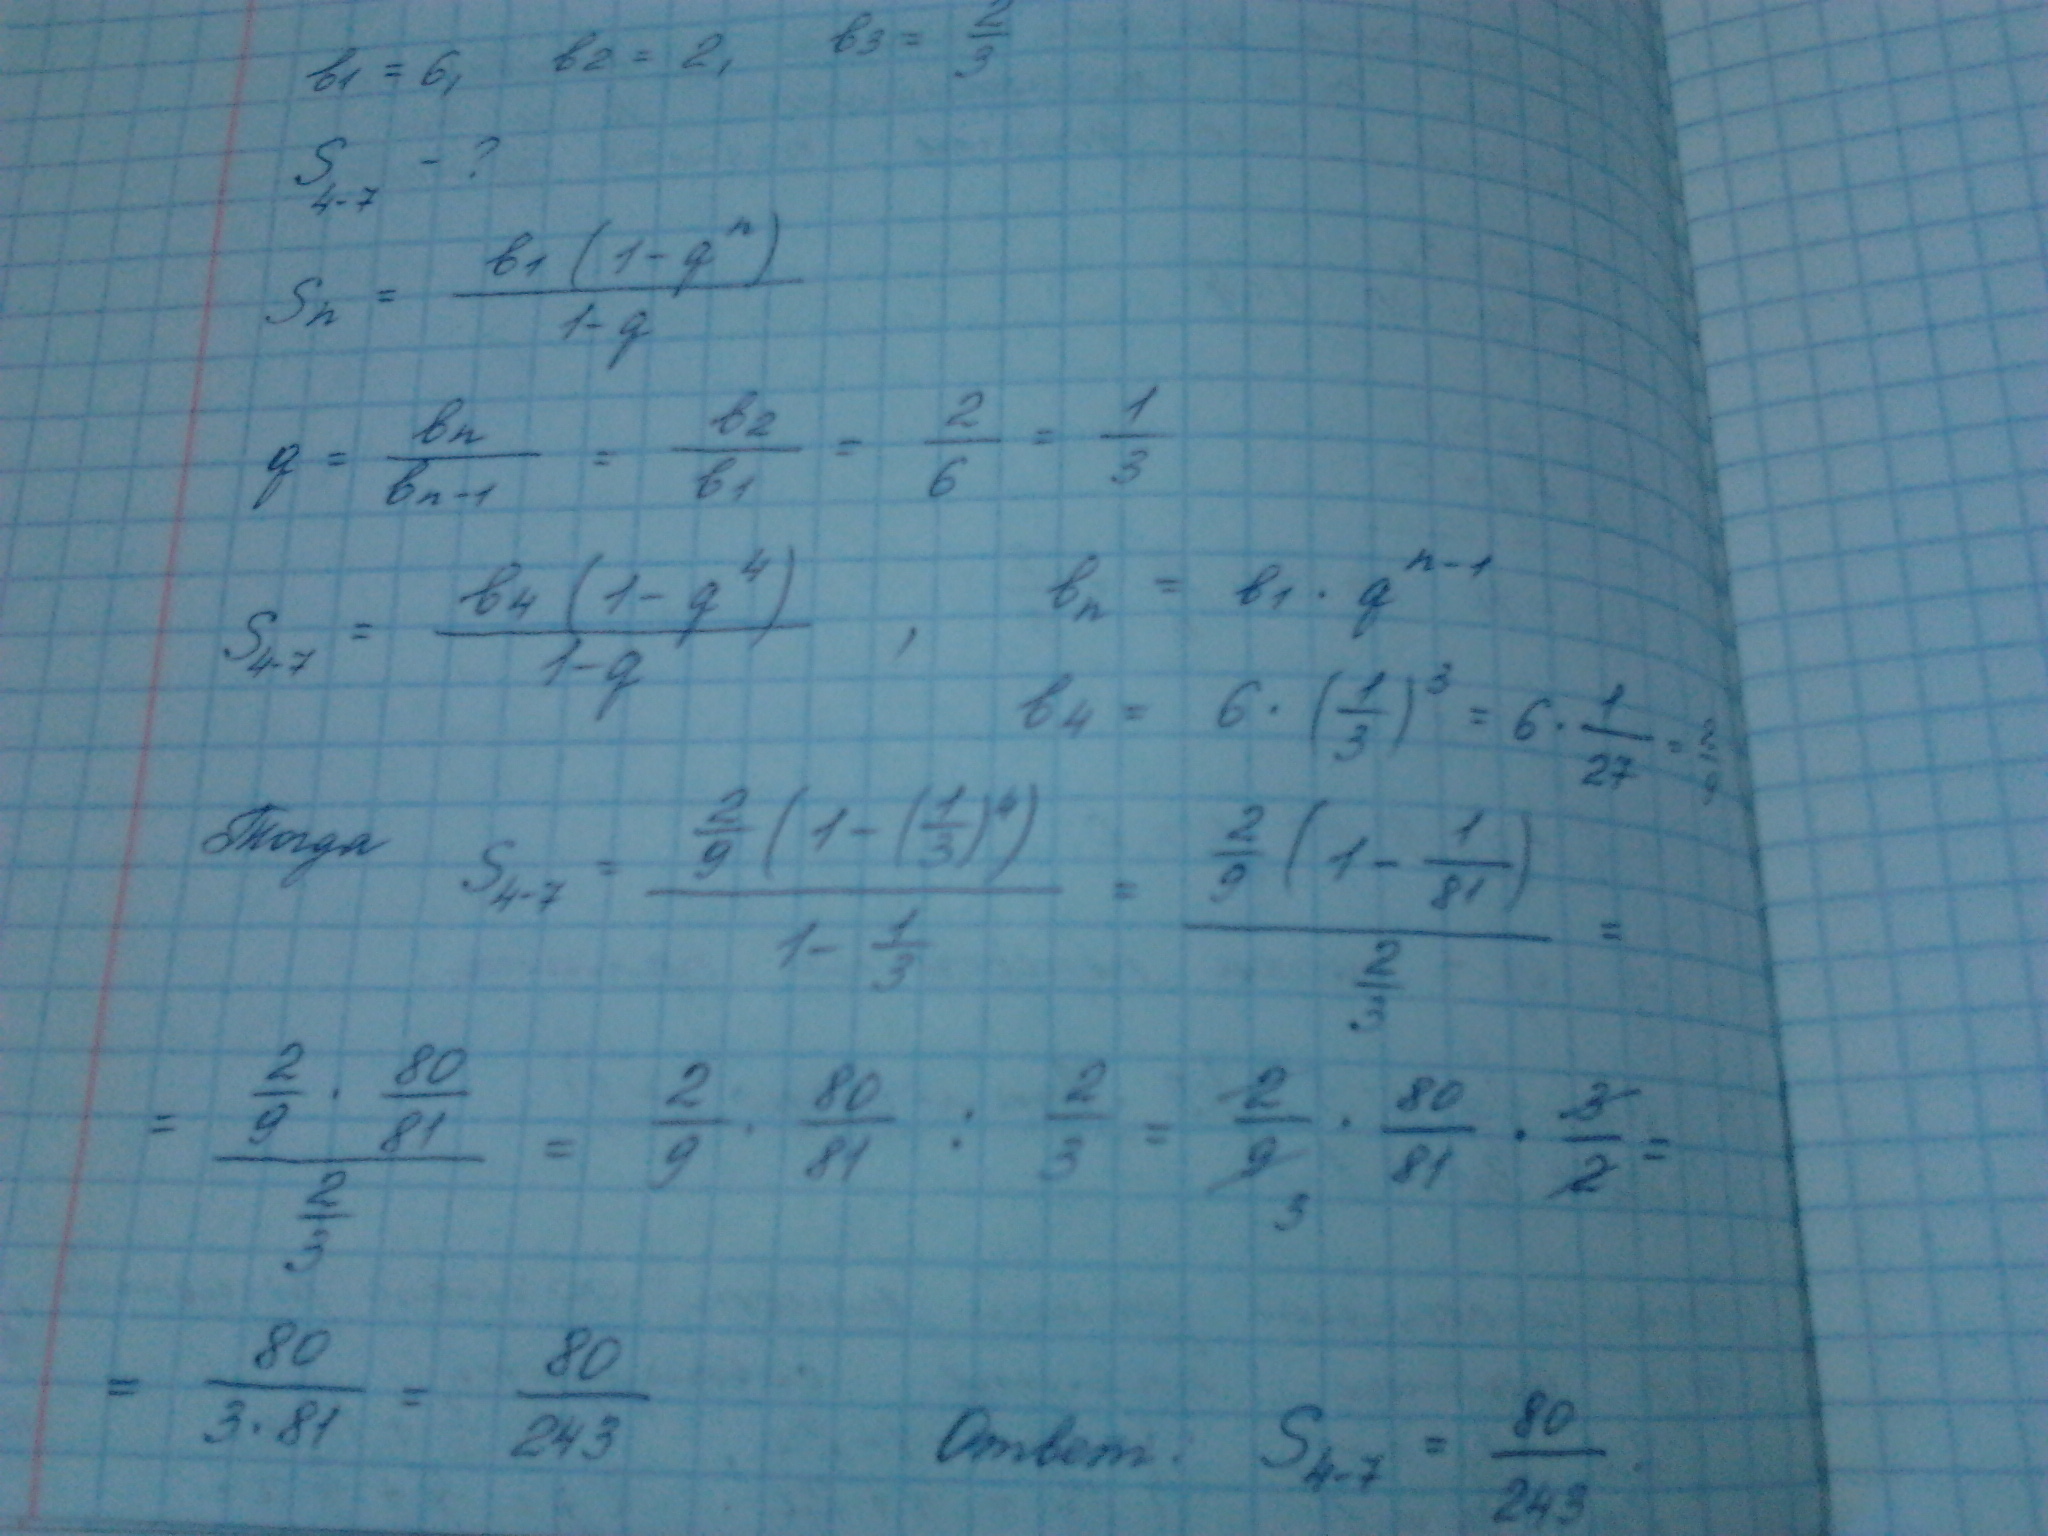 в1 = 6, в2 = 2, в3 = 2/3
S4-7 - ?
Sn = в1 (1 - q^n) / 1 - q
q = вn / вn-1 = в2 / в1 = 2/6 = 1/3
S4-7 = в4 (1 - q^4) / 1 - q , вn = в1 · q^n-1
в4 = 6 · (1/3)^3 = 6 · 1/27 = 2/9
Тогда S4-7 = 2/9 (1 - (1/3)^4) / 1 - 1/3 = 2/9 (1 - 1/81) / 2/3 =
= 2/9 · 80/81 / 2/3 = 2/9 · 80/81 : 2/3 = 2/9 3 · 80/81 · 3/2 =
= 80 / 3 · 81 = 80/243 Ответ: S4-7 = 80/243.